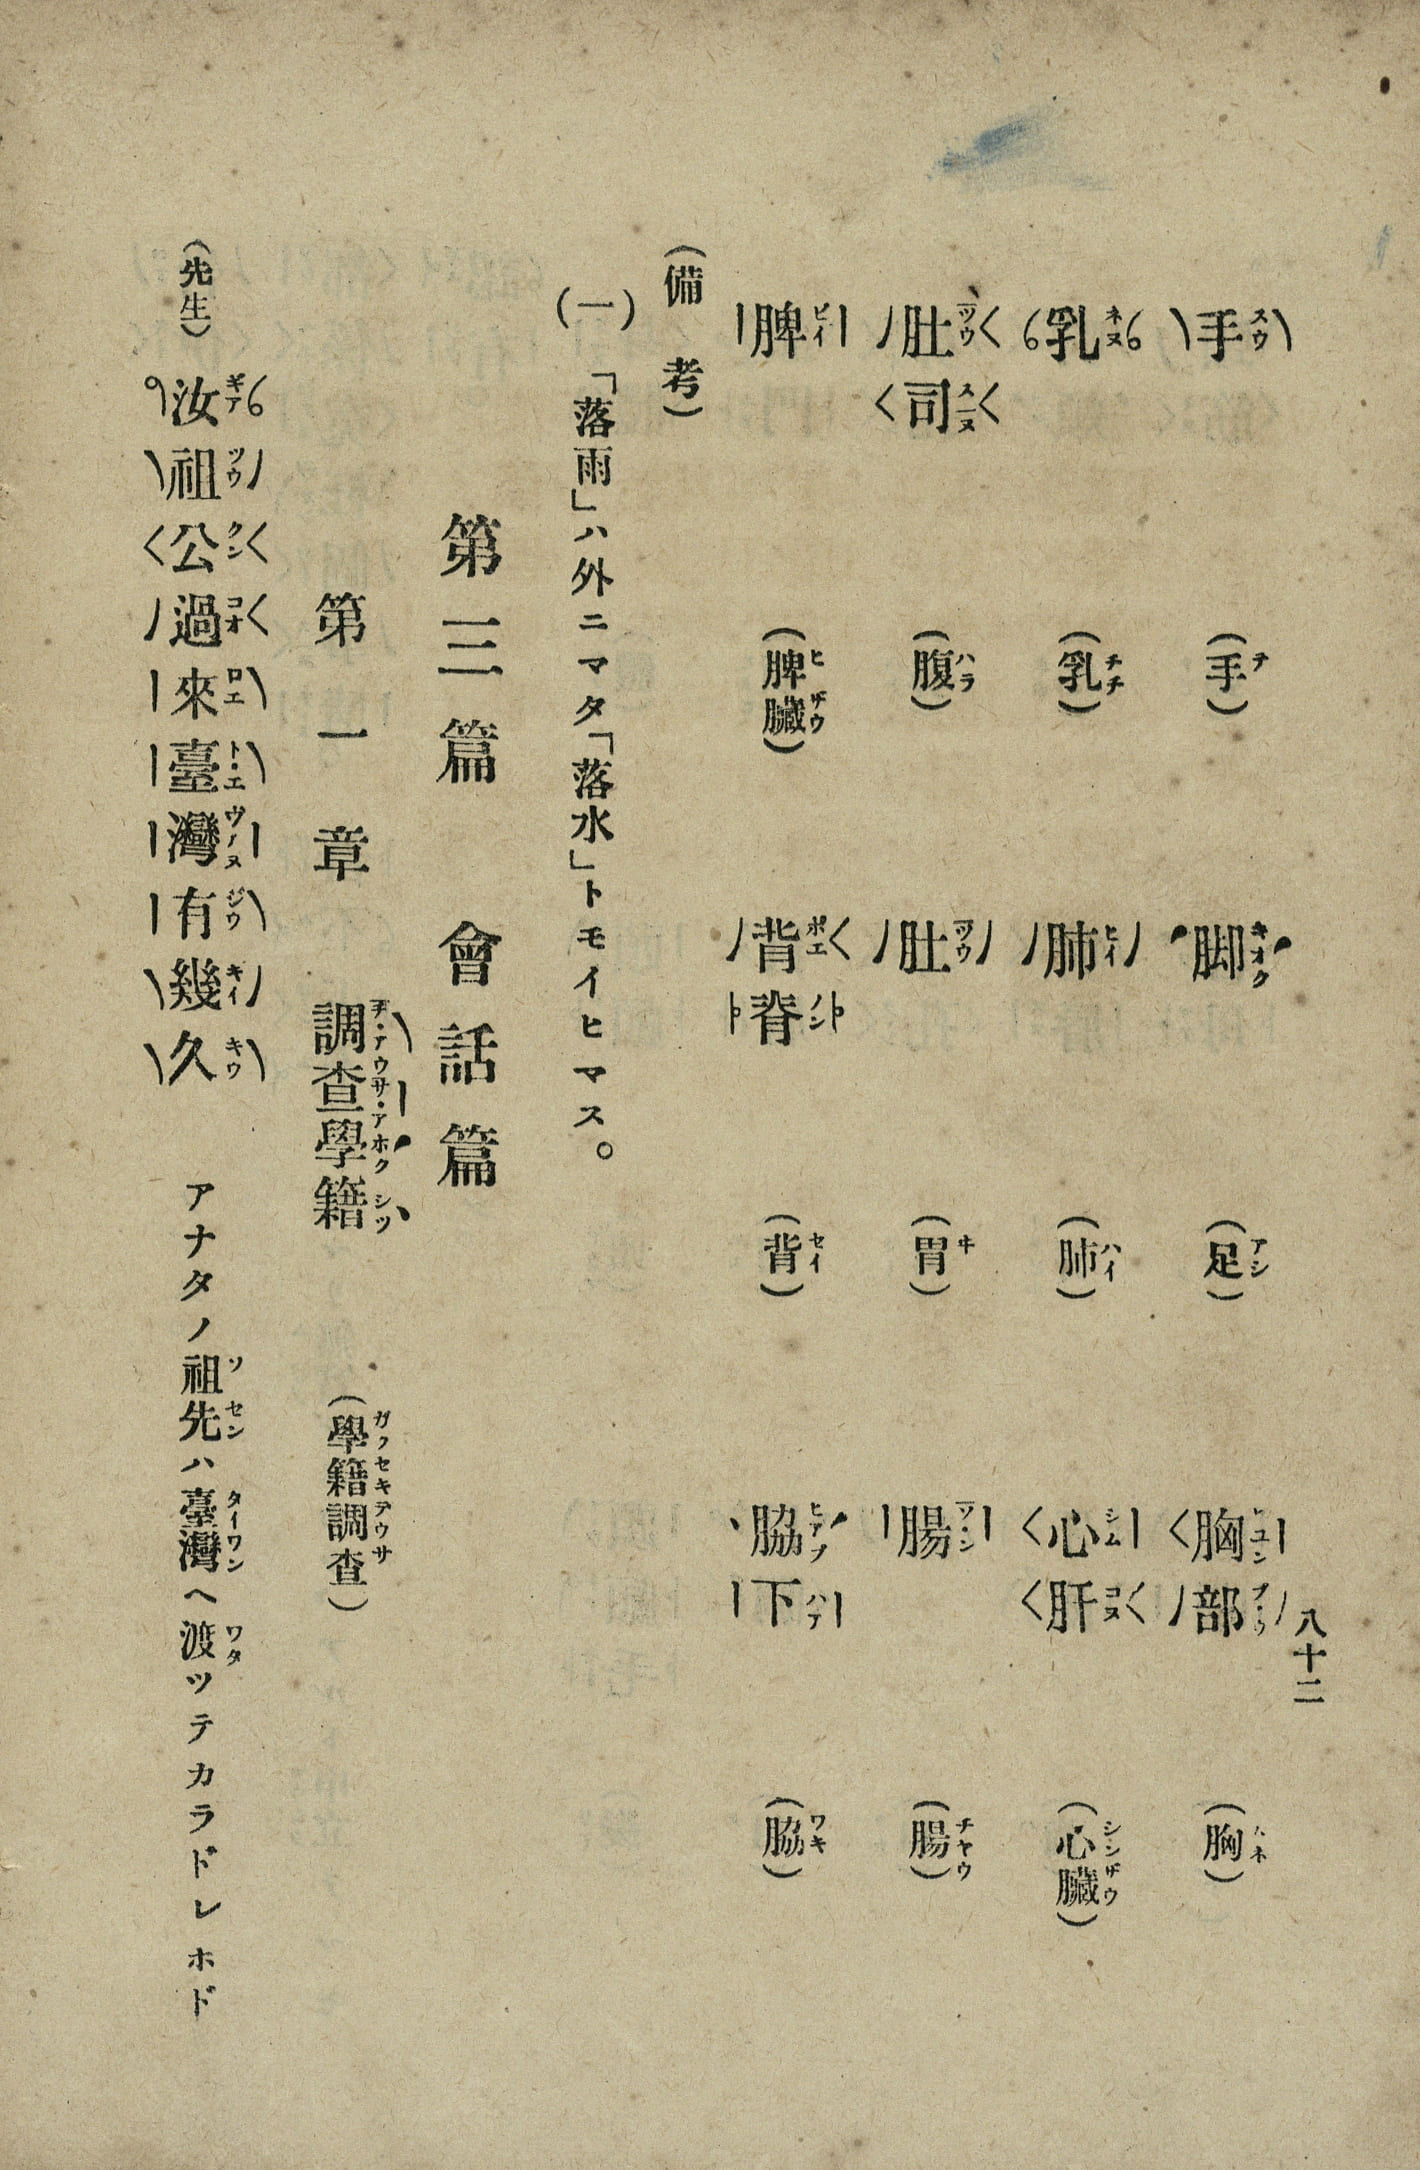 八十二
手 (手) 脚 (足) 胸部 (胸)
乳 (乳) 肺 (肺) 心肝 (心臟)
肚司 (腹) 肚 (胃) 腸 (腸)
脾 (脾臟) 背脊 (背) 脇下 (脇)
(備考)
(一) 「落雨」ハ外ニマタ「落水」トモイヒマス。
第三篇 會話篇
第一章 調查學籍 (學籍調查)
(先生) 汝祖公過來臺灣有幾久 アナタノ祖先ハ臺灣ヘ渡ツテカラドレホド